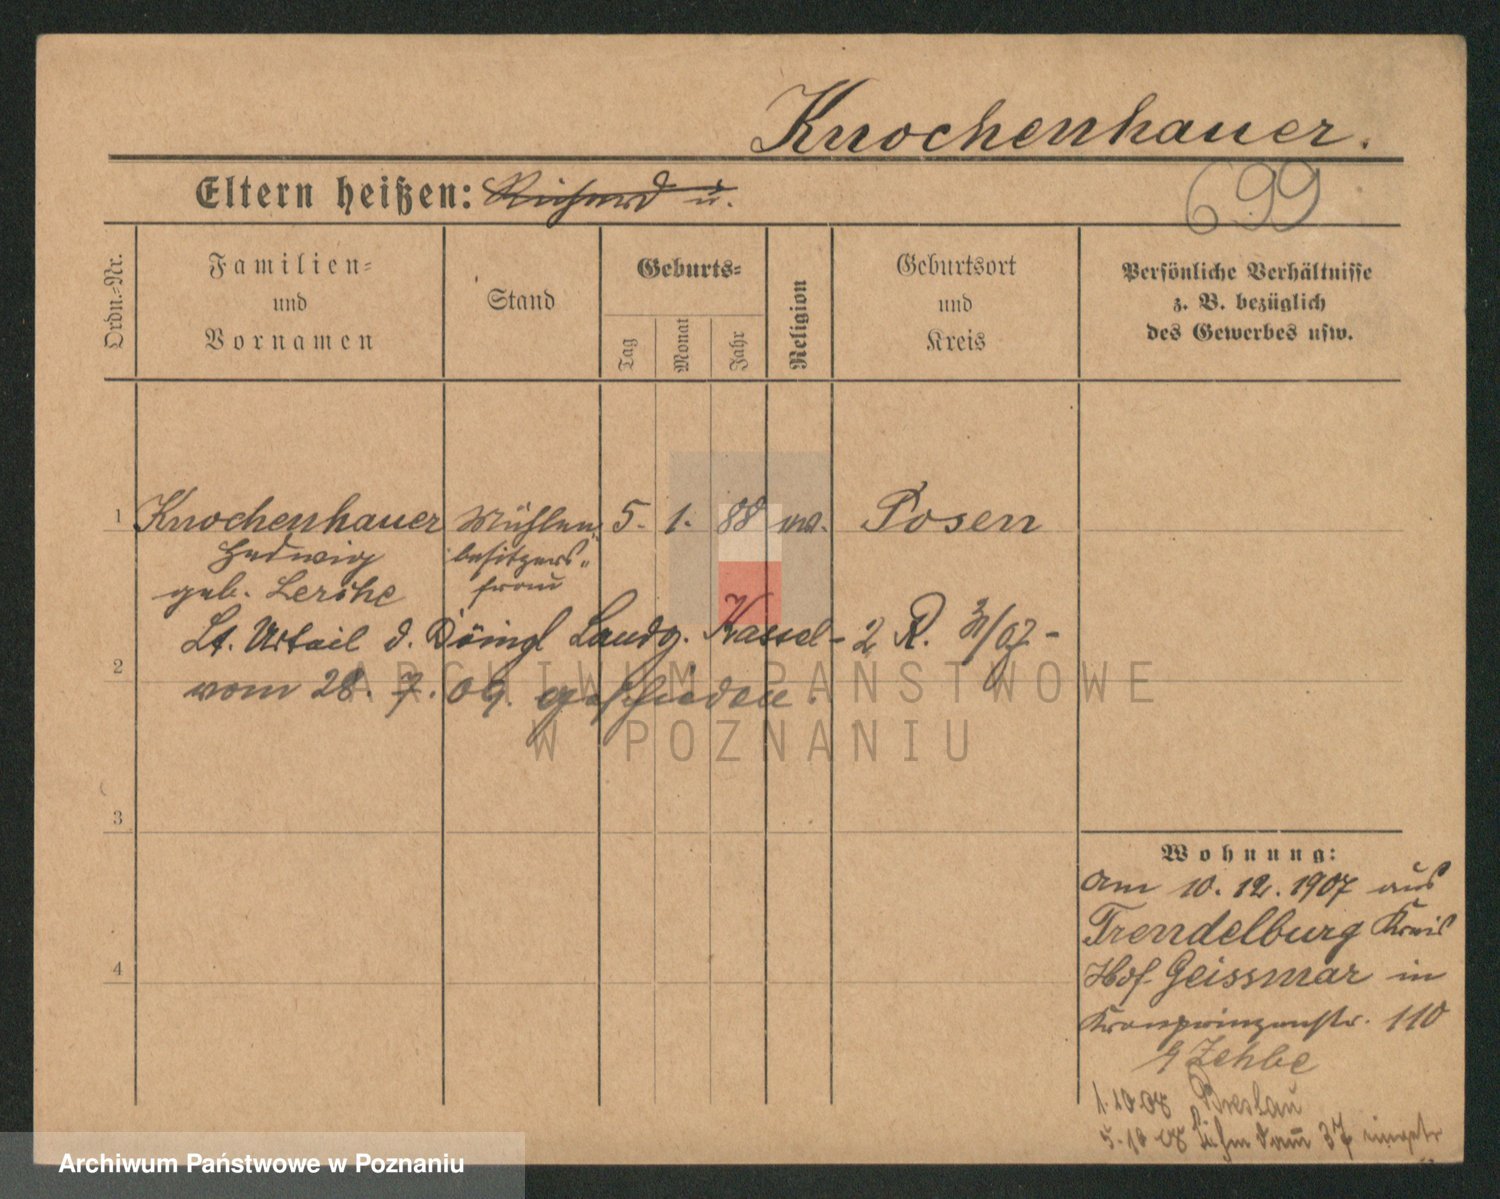 Knochenhauer.
699
Eltern heißen: Richard u.
Ordn.-Nr.
Familien-
und
Vornamen
Stand
Geburts-
Tag
Monat
Jahr
Religion
Geburtsort
und
Kreis
Persönliche Verhältnisse
z. B. bezüglich
des Gewerbes usw.
1 Knochenhauer Mühlen 5. 1. 88 Posen
Hedwig besitzers-
geb. Lerche frau
Lt. Urteil d. Königl Landg. Kassel - 2 R. 31/07 -
2
vom 28. 7. 09. geschieden.
ARCHIWUM PAŃSTWOWE
W POZNANIU
3
Wohnung:
am 10. 12. 1907 aus
Trendelburg Kreis
Hof Geissmar in
4
Kronprinzenstr. 110
Zehbe
1.10 08 Breslau
5.10 08 37
Archiwum Państwowe w Poznaniu